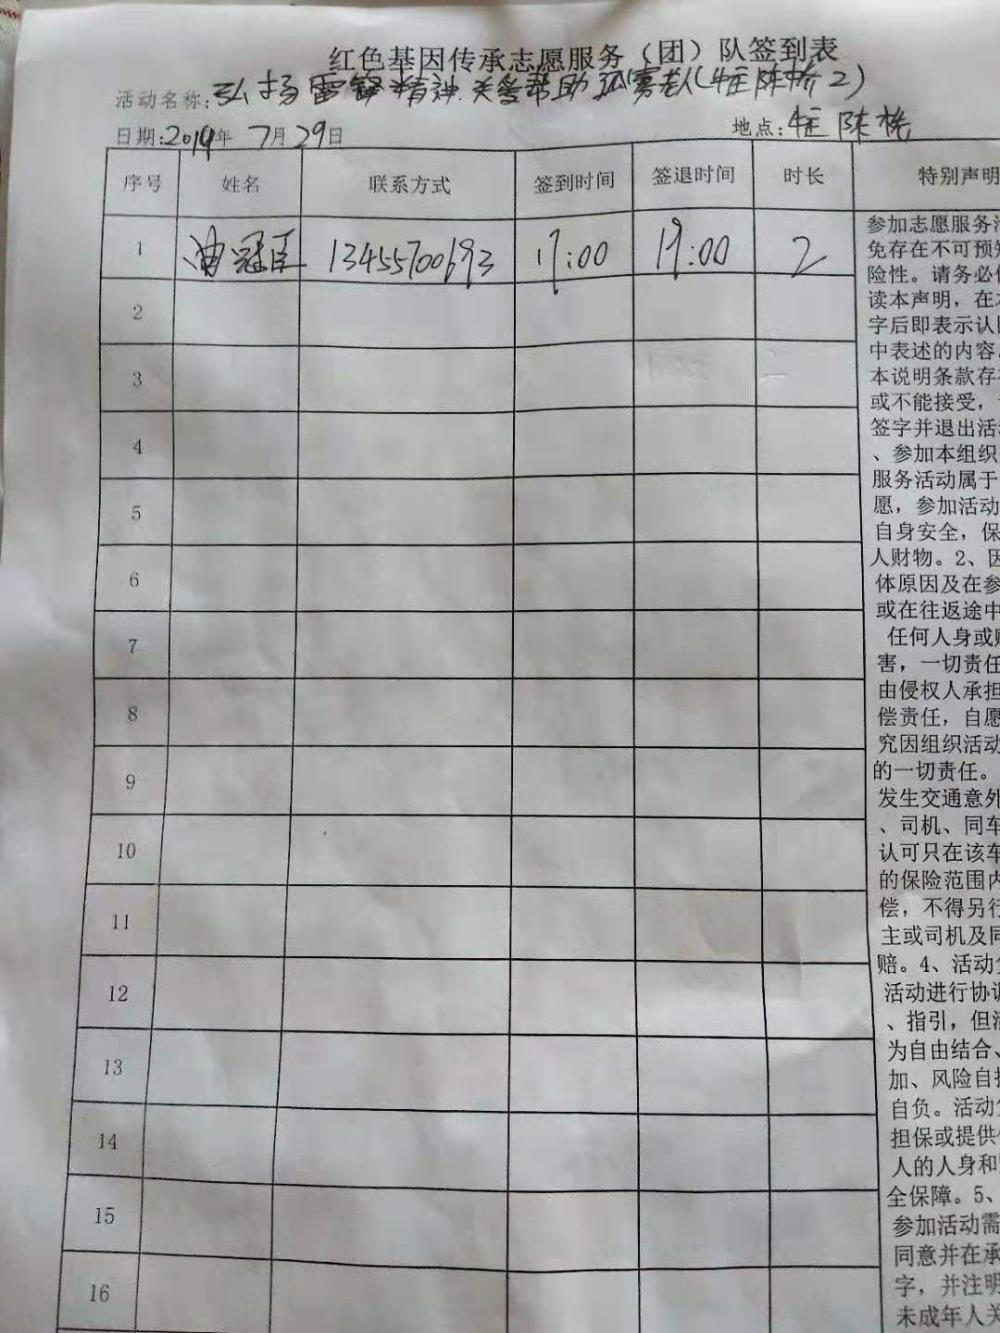 红色基因传承志愿服务（团）队签到表
活动名称:弘扬雷锋精神.关爱帮助孤寡老人(牛庄陈桥2)
日期:2019年 7月29日 地点:牛庄 陈桥
序号 姓名 联系方式 签到时间 签退时间 时长 特别声明
1 冠臣 13455700693 17:00 19:00 2
2
3
4
5
6
7
8
9
10
11
12
13
14
15
16
参加志愿服务活
免存在不可预知
险性。请务必
读本声明，在
字后即表示认
中表述的内容
本说明条款存
或不能接受，
签字并退出活
、参加本组织
服务活动属于
愿，参加活动
自身安全，保
人财物。2、因
体原因及在参
或在往返途中
任何人身或财
害，一切责任
由侵权人承担
偿责任，自愿
究因组织活动
的一切责任。
发生交通意外
、司机、同车
认可只在该车
的保险范围内
偿，不得另行
主或司机及同
赔。4、活动
活动进行协调
、指引，但活
为自由结合、
加、风险自担
自负。活动
担保或提供
人的人身和
全保障。5、
参加活动需
同意并在承
字，并注明
未成年人关